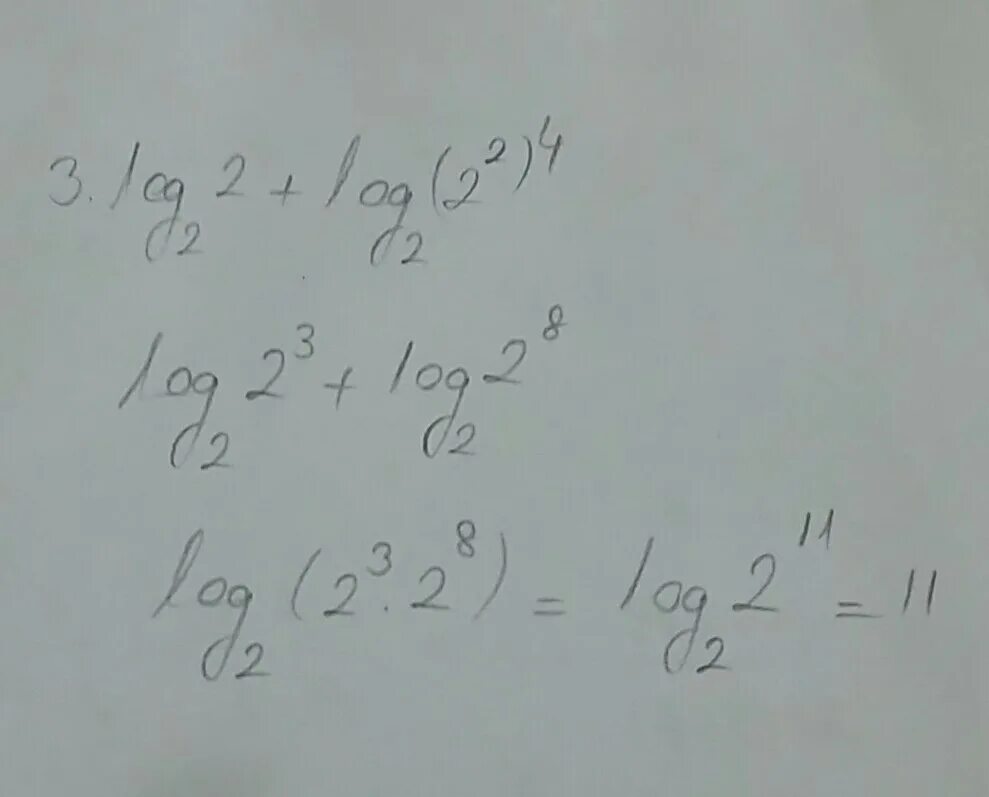 3. log₂ 2 + log₂ (2²)⁴
log₂ 2³ + log₂ 2⁸
log₂ (2³ . 2⁸) = log₂ 2¹¹ = 11